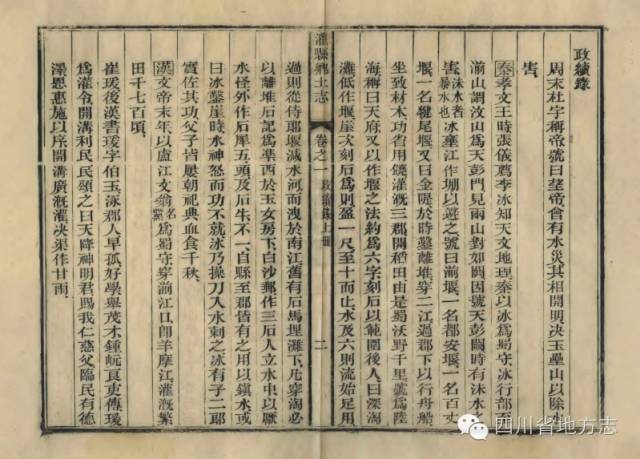 政績錄
周末杜宇稱帝號曰望帝會有水災其相開明决玉壘山以除水
害
秦孝文王時張儀薦李冰知天文地理秦以冰爲蜀守冰行部至
湔山謂汶山爲天彭門見兩山對如闕因號天彭闕時有沫水之
害沫水者暴水也冰壅江作堋以避之號曰湔堰一名都安堰一名百丈
堰一名犍尾堰又曰金隄於時鑿離堆穿二江過郡下以行舟船
坐致材木功省用饒灌漑三郡開稻田由是蜀沃野千里號爲陸
海稱曰天府又以作堰之法約爲六字刻石以範圍後人曰深淘
灘低作堰崖次刻石爲則盈一尺至十而止水及六則流始足用
灌縣鄉土志
卷之一
政績錄上冊
二
過則從侍郎堰減水河而洩於南江舊有石馬埋灘下凡穿淘必
以離堆石記爲準西於玉女房下白沙郵作三石人立水中以厭
水怪外作石犀五頭及石牛不一自縣至郡皆有之用以鎮水或
曰冰鑿崖時水神怒而功不就冰乃操刀入水刺之冰有子二郎
實佐其功父子皆屢朝祀典血食千秋
漢文帝末年以盧江文翁名黨爲蜀守穿湔江口卽羊摩江灌漑繁
田千七百頃
崔瑗後漢書瑗字伯玉涿郡人早孤好學舉茂才鍾岏袁吏傳瑗
爲灌令開溝利民民頌之曰天降神明君賜我仁慈父臨民有德
澤恩惠施以序開溝廣漑灌决渠作甘雨
四川省地方志